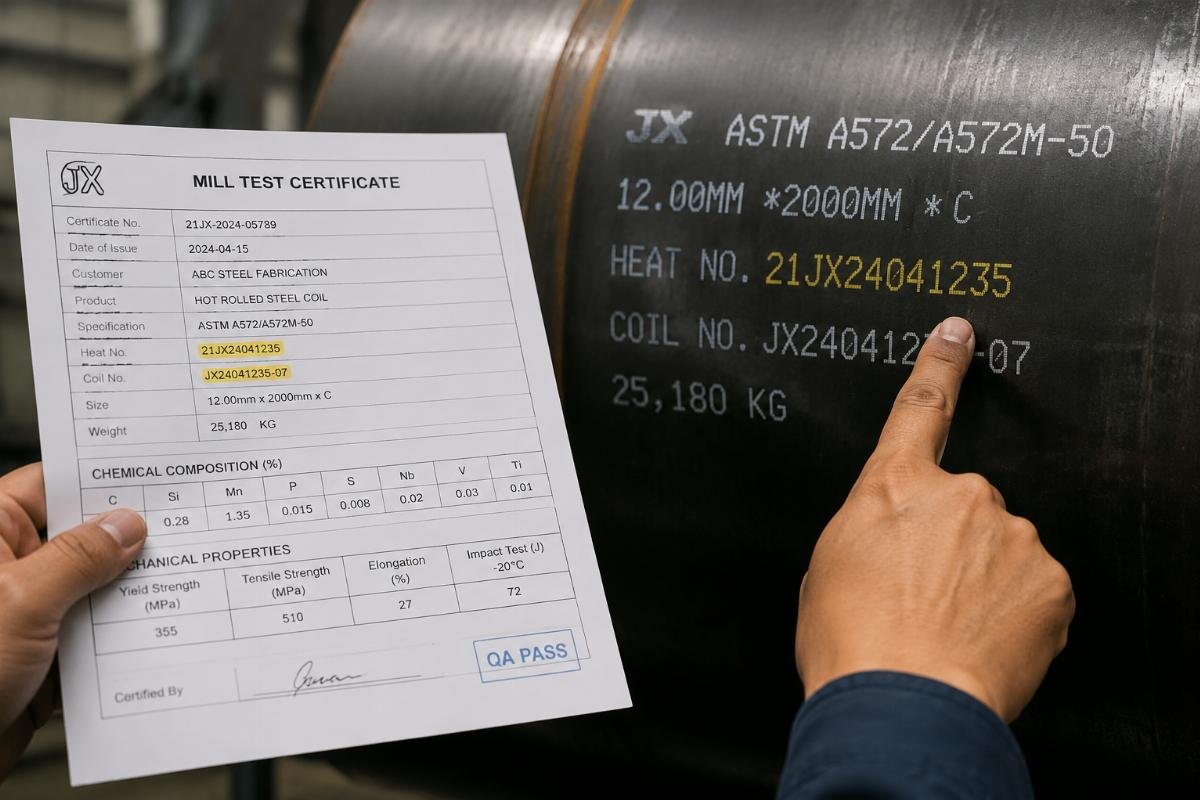 JX
MILL TEST CERTIFICATE
Certificate No. 21JX-2024-05789
Date of Issue 2024-04-15
Customer ABC STEEL FABRICATION
Product HOT ROLLED STEEL COIL
Specification ASTM A572/A572M-50
Heat No. 21JX24041235
Coil No. JX24041235-07
Size 12.00mm x 2000mm x C
Weight 25,180 KG
CHEMICAL COMPOSITION (%)
C Si Mn P S Nb V Ti
0.28 1.35 0.015 0.008 0.02 0.03 0.01
CHANICAL PROPERTIES
Yield Strength (MPa) Tensile Strength (MPa) Elongation (%) Impact Test (J) -20°C
355 510 27 72
Certified By
QA PASS
JX ASTM A572/A572M-50
12.00MM *2000MM *C
HEAT NO. 21JX24041235
COIL NO. JX240412 -07
25,180 KG